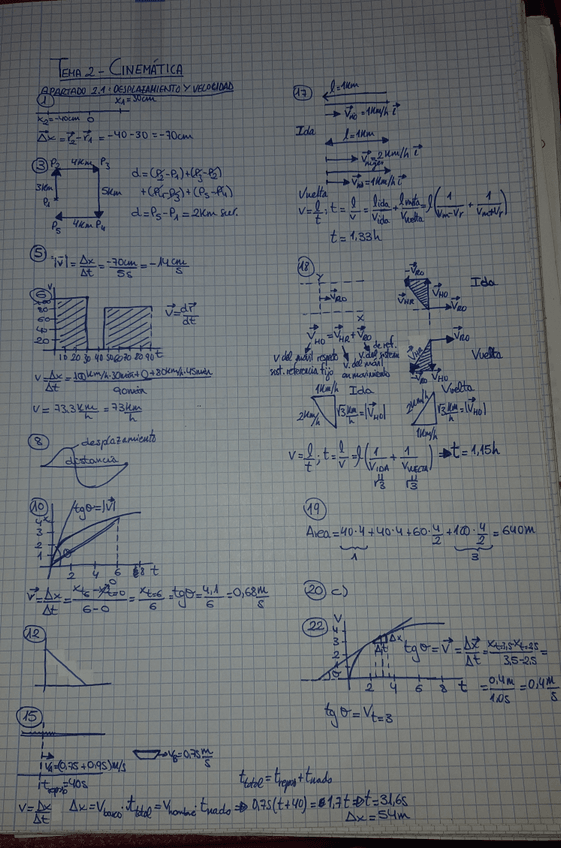 TEMA 2 - CINEMÁTICA
APARTADO 2.1: DESPLAZAMIENTO Y VELOCIDAD
①
x₁=30cm
x₂=-40cm 0
Δx = r₂ - r₁ = -40-30 = -70cm
③
P₂ 4km P₃
3km
5km
P₁
P₅ 4km P₄
d=(P₂-P₁)+(P₃-P₂)
+(P₄-P₃)+(P₅-P₄)
d=P₅-P₁=2km sur.
⑤ |v| = Δx/Δt = -70cm/5s = -14 cm/s
⑥
V
100
80
60
40
20
10 20 30 40 50 60 70 80 90 t
v = dr/dt
v = Δx/Δt = 100km/h·30min+0+80km/h·45min / 90min
v = 73.3 km/h = 73 km/h
⑧
desplazamiento
distancia
⑩
tgσ=|v|
4
3
2
1
2 4 6 8 t
v = Δx/Δt = x t₆ - x t=0 / 6-0 = x t=6 / 6 = tgσ = 4,1/6 = 0,68 m/s
⑫
⑮
=(0,75+0,95)m/s
=0,75 m/s
t reposo=40s
t total = t reposo + t nado
v = Δx/Δt Δx = V barco · t total = v hombre · t nado ⇒ 0,75(t+40) = 1,7t ⇒ t=31,6s
Δx = 54m
⑰
l=1km
V HO = 1Km/h i
Ida
l=1km
= 2 km/h i
=1Km/h i
Vuelta
v = l/t ; t = l/v = l ida/v ida + l vuelta/v vuelta = l(1/Vm-Vr + 1/Vm+Vr)
t = 1,33h
⑱
Y
V RO
X
V HO = V HR + V RO
v del móvil respecto
sist. referencia fijo
v. del móvil
en movimiento
v. del sistema
de ref.
-V RO
Ida
V HR
V HO
V RO
V RO
Vuelta
V RO V HO
1km/h Ida
2km/h
√3 km/h = |V HO|
Vuelta
2km/h
√3 km/h = |V HO|
1km/h
v = l/t ; t = l/v = l(1/V IDA + 1/V VUELTA) ⇒ t = 1,15h
√3 √3
⑲
Area = 40·4 + 40·4 + 60·4/2 + 100·4/2 = 640m
1 3
⑳ c)
㉒
V
4
3
2
1
Δx
Δt
σ
2 4 6 8 t
tgσ = v = Δx/Δt = x t=3,5 - x t=2,5 / 3,5-2,5 =
= 0,4m/1,0s = 0,4 m/s
tgσ = V t=3